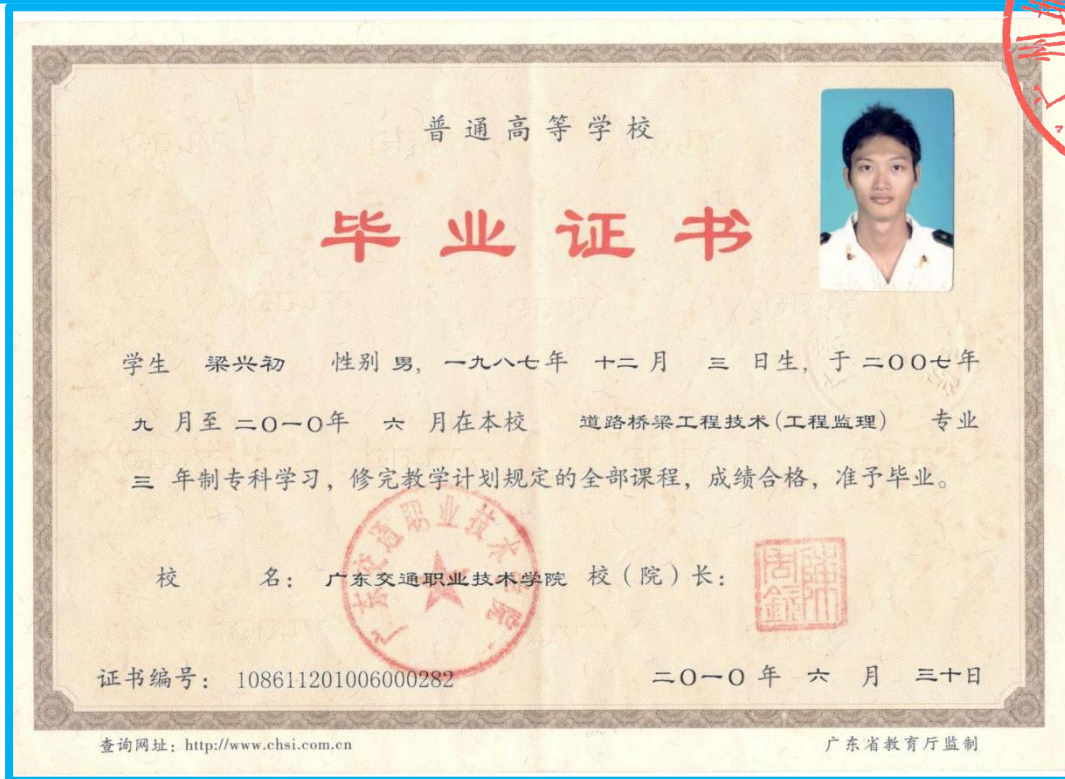 普通高等学校
毕业证书
学生 梁兴初 性别 男, 一九八七年 十二 月 三 日生, 于 二〇〇七年
九 月至 二〇一〇年 六 月在本校 道路桥梁工程技术(工程监理) 专业
三 年制专科学习, 修完教学计划规定的全部课程, 成绩合格, 准予毕业。
广东交通职业技术学院
校 名: 广东交通职业技术学院 校(院)长:
证书编号: 108611201006000282 二〇一〇 年 六 月 三十日
查询网址: http://www.chsi.com.cn 广东省教育厅监制